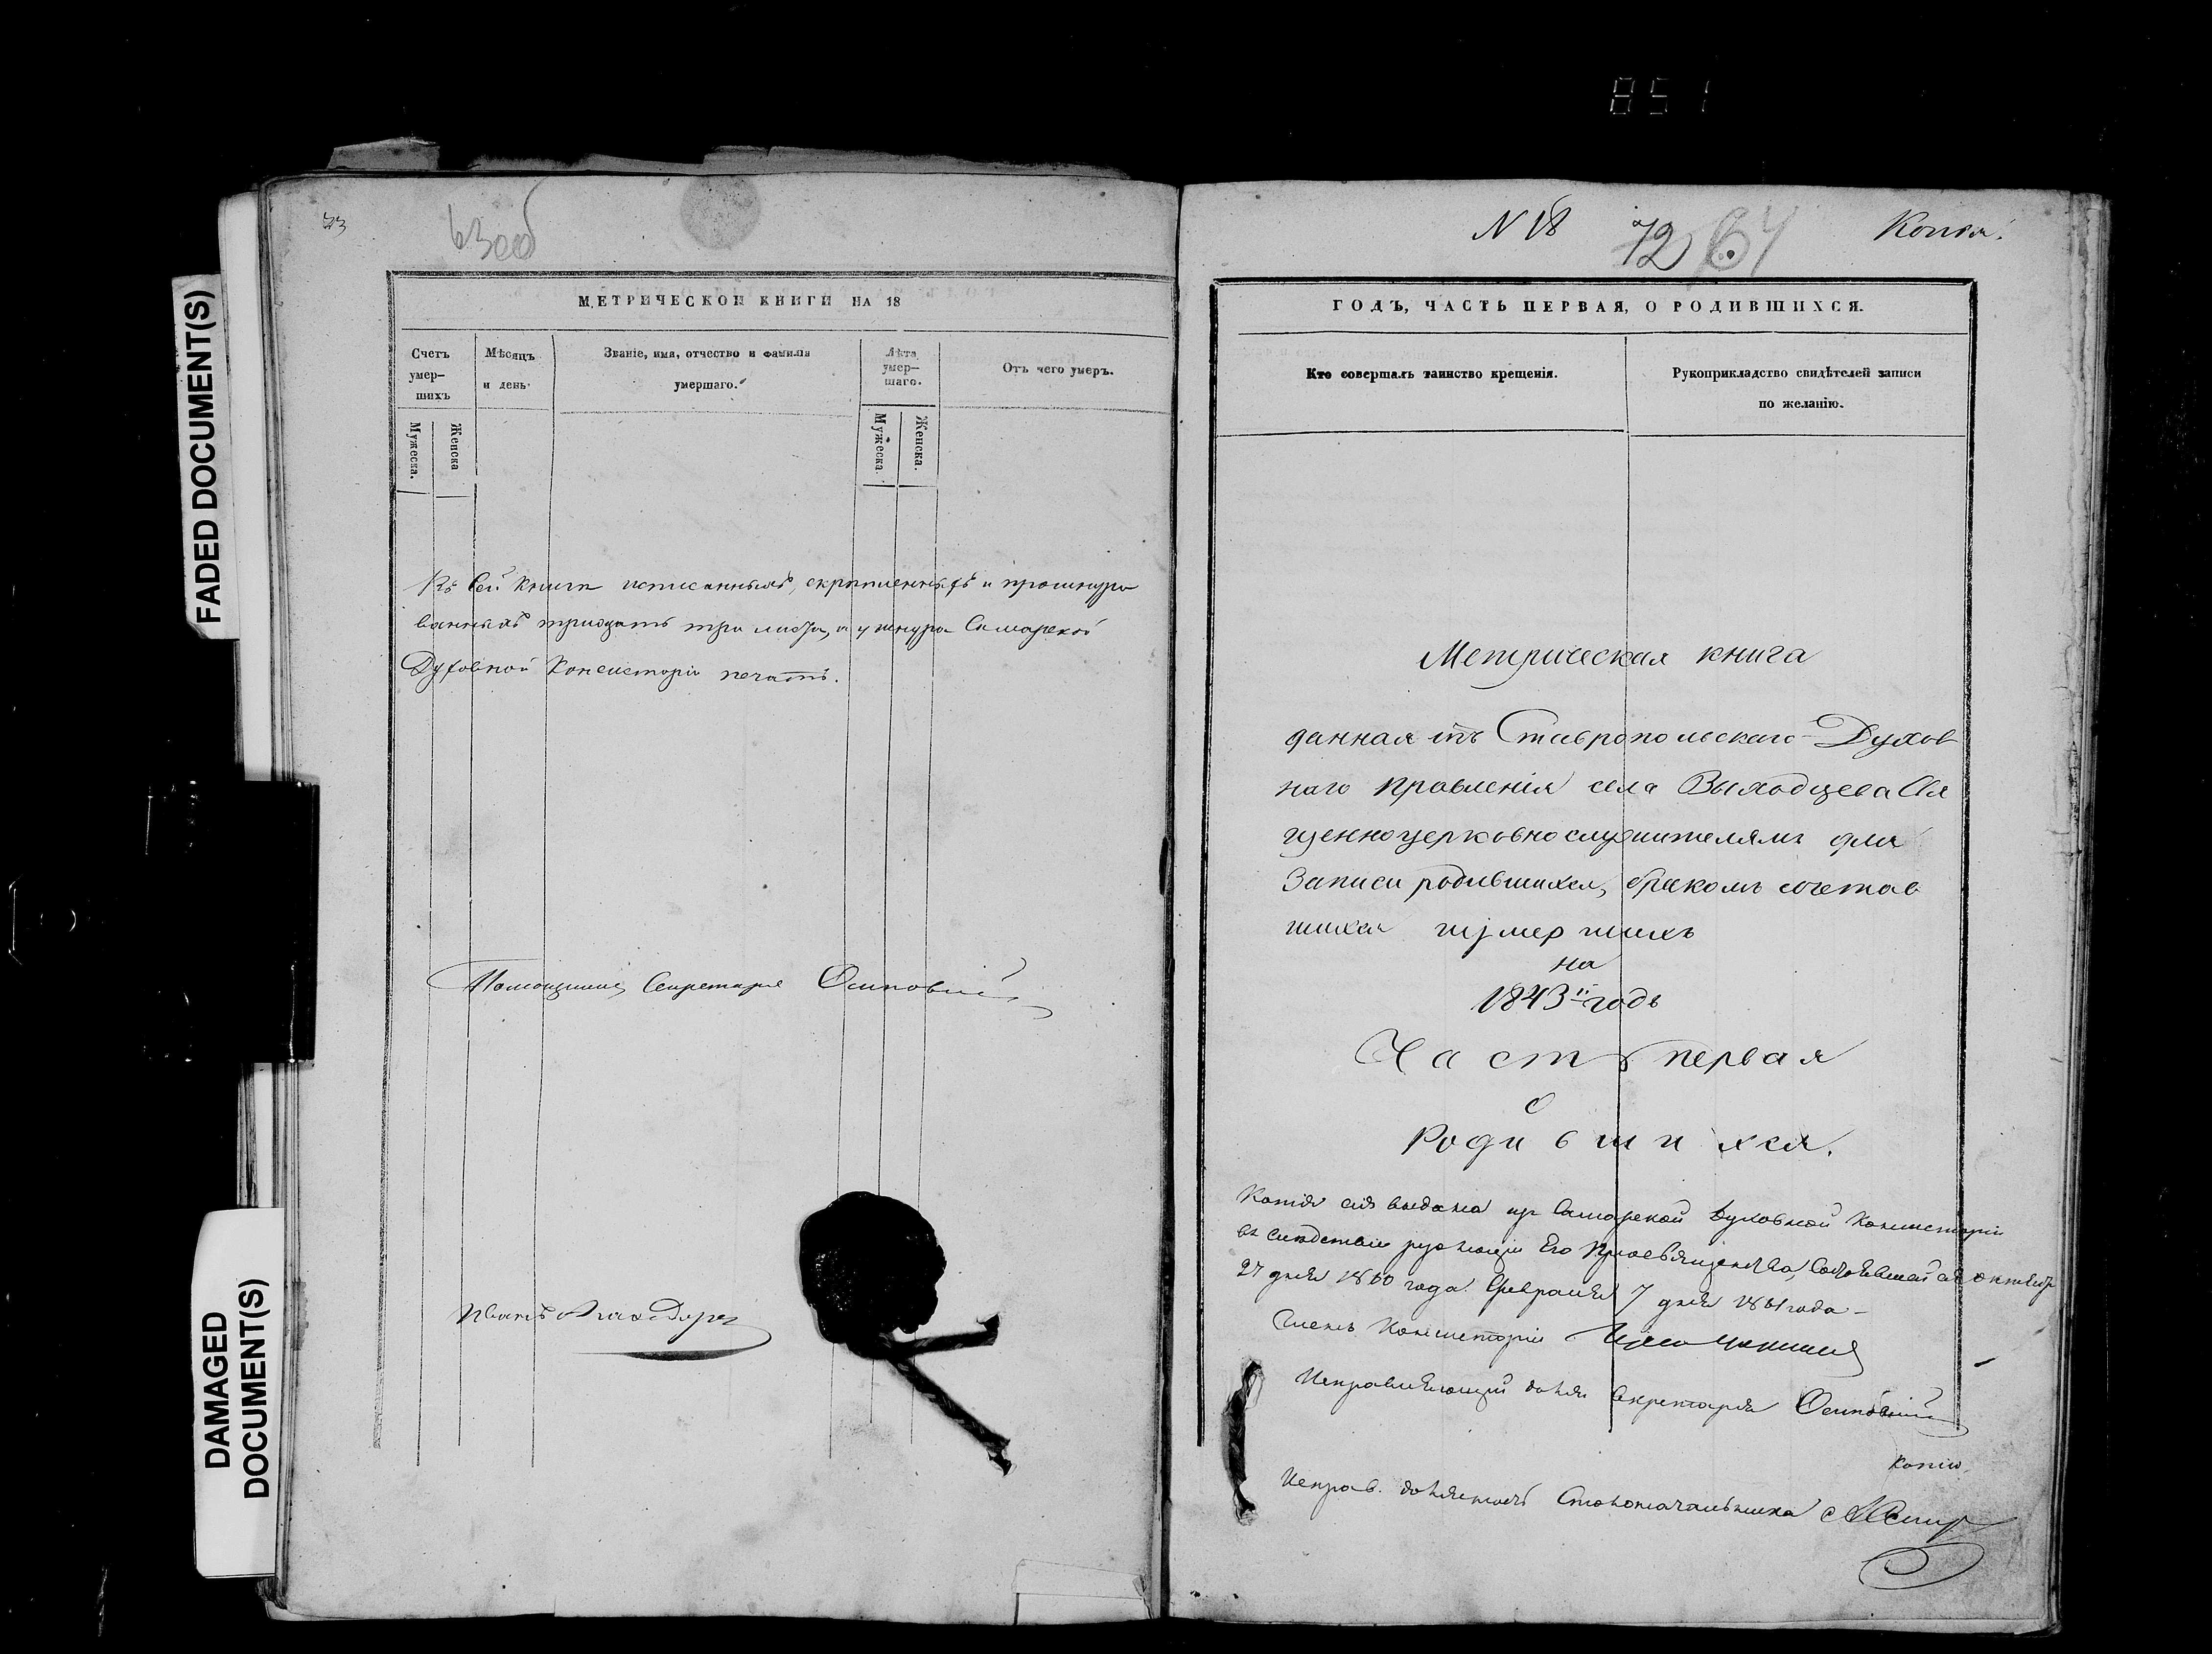 851
FADED DOCUMENT(S)
DAMAGED
DOCUMENT(S)
33
63 об
МЕТРИЧЕСКОЙ КНИГИ НА 18
Счетъ умер-шихъ
Мѣсяцъ и день
Званіе, имя, отчество и фамилія умершаго.
Лѣта умер-шаго.
Отъ чего умеръ.
Мужеска.
Женска
Мужеска.
Женска.
Въ сей книгѣ исписанныхъ, скрѣпленныхъ и прошнуро
ванныхъ тридцать три листа, и у шнура Самарской
Духовной Консисторіи печать.
Помощникъ Секретаря Осиповскій
Иванъ
N 18
72
64
Копія.
ГОДЪ, ЧАСТЬ ПЕРВАЯ, О РОДИВШИХСЯ.
Кто совершалъ таинство крещенія.
Рукоприкладство свидѣтелей записи
по желанію.
Метрическая книга
данная отъ Ставропольскаго Духов
наго правленія села Выходцева Свя
щенноцерковнослужителямъ для
Записи родившихся, бракомъ сочетав
шихся и умершихъ
на
1843й годъ
Часть первая
о
Родившихся.
Копія сія выдана из Самарской Духовной Консисторіи
въ слѣдствіе резолюціи Его Преосвященства, состоявшейся октября
27 дня 1860 года. Февраля 7 дня 1861 года
Членъ Консисторіи
Исправляющій долж. Секретаря Осиповскій
копію.
Исправ. должность Столоначальника